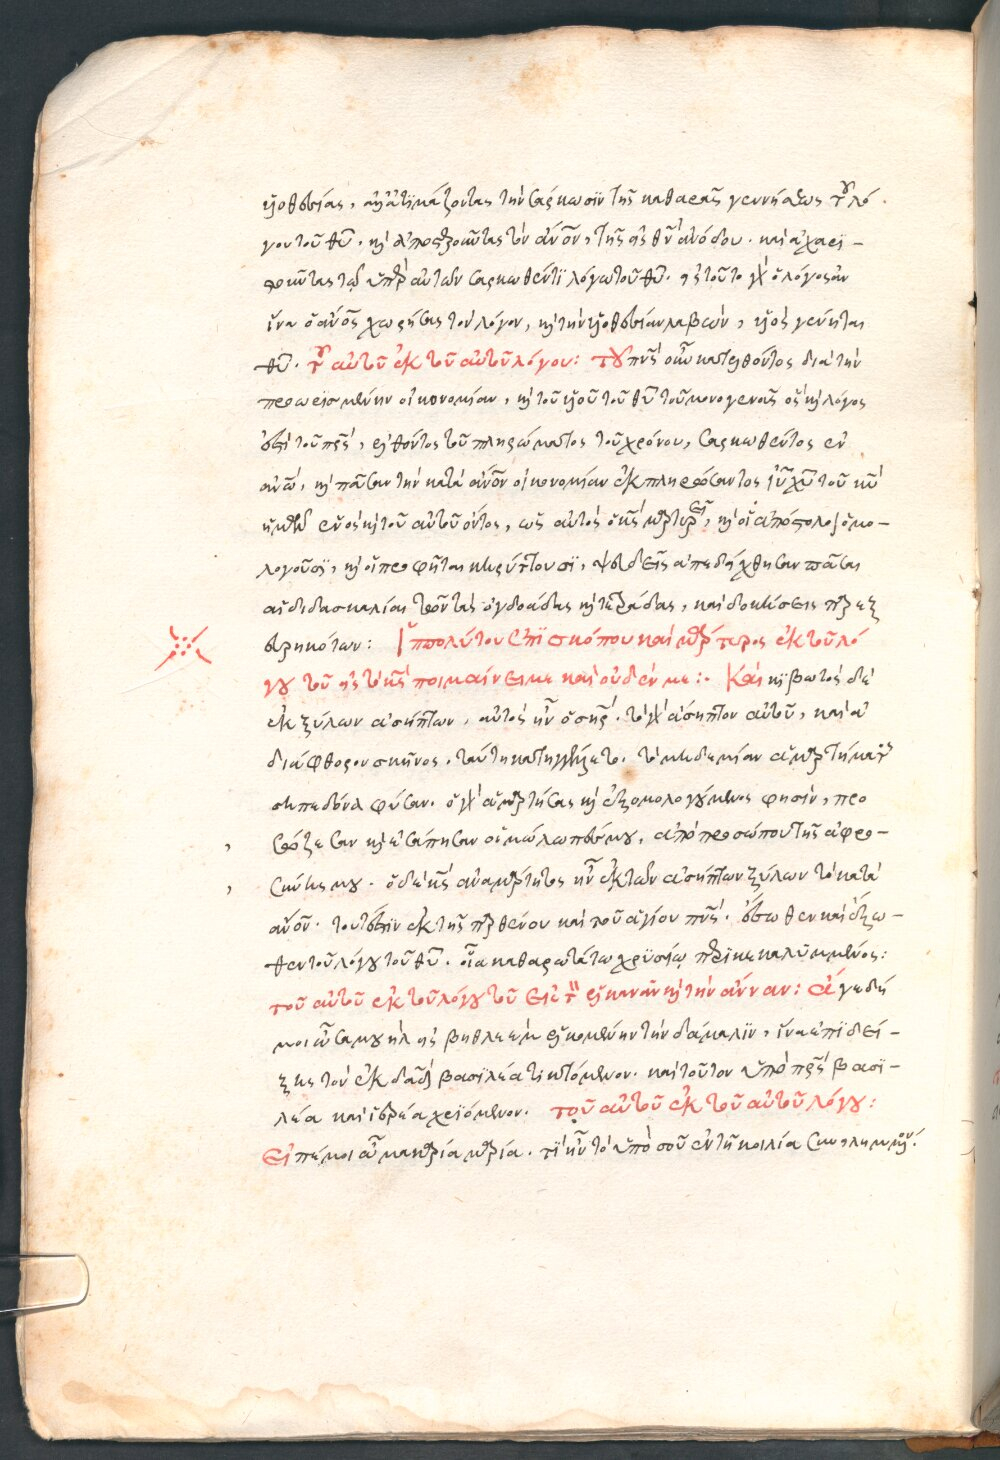 υἱοθεσίας, ἀλλ' ἀτιμάζοντας τὴν σάρκωσιν τῆς καθαρᾶς γεννήσεως τοῦ λό
γου τοῦ θυ. κὶ ἀποστεροῦντας τὸν ἄνον, τῆς εἰς θν ἀνόδου. καὶ ἀχαρι-
στοῦντας τῷ ὑπὲρ αὐτῶν σαρκωθέντι λόγω τοῦ θυ. εἰς τοῦτο γὰρ ὁ λόγος ἀν
ἵνα ὁ ἄνος χωρήσας τὸν λόγον, κὶ τὴν υἱοθεσίαν λαβὼν, υἱὸς γένηται
θυ. τοῦ αὐτοῦ ἐκ τοῦ αὐτοῦ λόγου: τοῦ πνς οὖν κατελθόντος διὰ τὴν
προωρισμένην οἰκονομίαν, κὶ τοῦ υἱοῦ τοῦ θυ τοῦ μονογενοῦς ὃς κὶ λόγος
ἐστὶ τοῦ πρς, ἐλθόντος τοῦ πληρώματος τοῦ χρόνου, σαρκωθέντος ἐν
ἀνω, κὶ πᾶσαν τὴν κατὰ ἄνον οἰκονομίαν ἐκπληρώσαντος ιυ χυ τοῦ κυ
ἡμῶν ἑνὸς κὶ τοῦ αὐτοῦ ὄντος, ὡς αὐτὸς ὁ κς μαρτυρεῖ, κὶ οἱ ἀπόστολοι ὁμο-
λογοῦσι, κὶ οἱ προφῆται κηρύττουσι, ψευδεῖς ἀπεδείχθησαν πᾶσαι
αἱ διδασκαλίαι τῶν τὰς ὀγδοάδας κὶ τετράδας, καὶ δοκήσεις παρεξ
ευρηκότων: Ἱππολύτου ἐπισκόπου καὶ μάρτυρος ἐκ τοῦ λό
γου τοῦ εἰς τὸ κς ποιμαίνει με καὶ οὐδέν με:. Καὶ κιβωτὸς δὲ
ἐκ ξύλων ἀσήπτων, αὐτὸς ἦν ὁ σηρ. τὸ γὰρ ἄσηπτον αὐτοῦ, καὶ ἀ
διάφθορον σκῆνος. ταύτη κατηγγέλλετο. τὸ μηδεμίαν ἁμαρτήματος
σηπεδόνα φύσαν. ὁ γὰρ ἁμαρτήσας κὶ ἐξομολογούμενος φησὶν, προ
σώζεσαν κὶ ἐσάπησαν οἱ μώλωπές μου, ἀπὸ προσώπου τῆς ἀφρο-
σύνης μου. ὁ δὲ κς ἀναμάρτητος ἦν ἐκ τῶν ἀσήπτων ξύλων τὸ κατὰ
ἄνον. τουτέστιν ἐκ τῆς παρθένου καὶ τοῦ ἁγίου πνς. ἔσωθεν καὶ ἔξω-
θεν τοῦ λόγου τοῦ θυ. οἷα καθαρωτάτω χρυσίῳ περικεκαλυμμένος:
τοῦ αὐτοῦ ἐκ τοῦ λόγου τοῦ εἰς τ ἑλκανὰν κὶ τὴν ἄνναν: ἄγε δή
μοι ὦ σαμουὴλ εἰς βηθλεὲμ ἑλκομένην τὴν δάμαλιν, ἵνα ἐπιδεί-
ξης τὸν ἐκ δαδ βασιλέα τικτόμενον. καὶ τοῦτον ὑπὸ πρς βασι-
λέα καὶ ἱερέα χριόμενον. τοῦ αὐτοῦ ἐκ τοῦ αὐτοῦ λόγου:
εἰπέ μοι ὦ μακαρία μαρία. τί ἦν τὸ ὑπὸ σοῦ ἐν τῆ κοιλία συνειλημμένον;